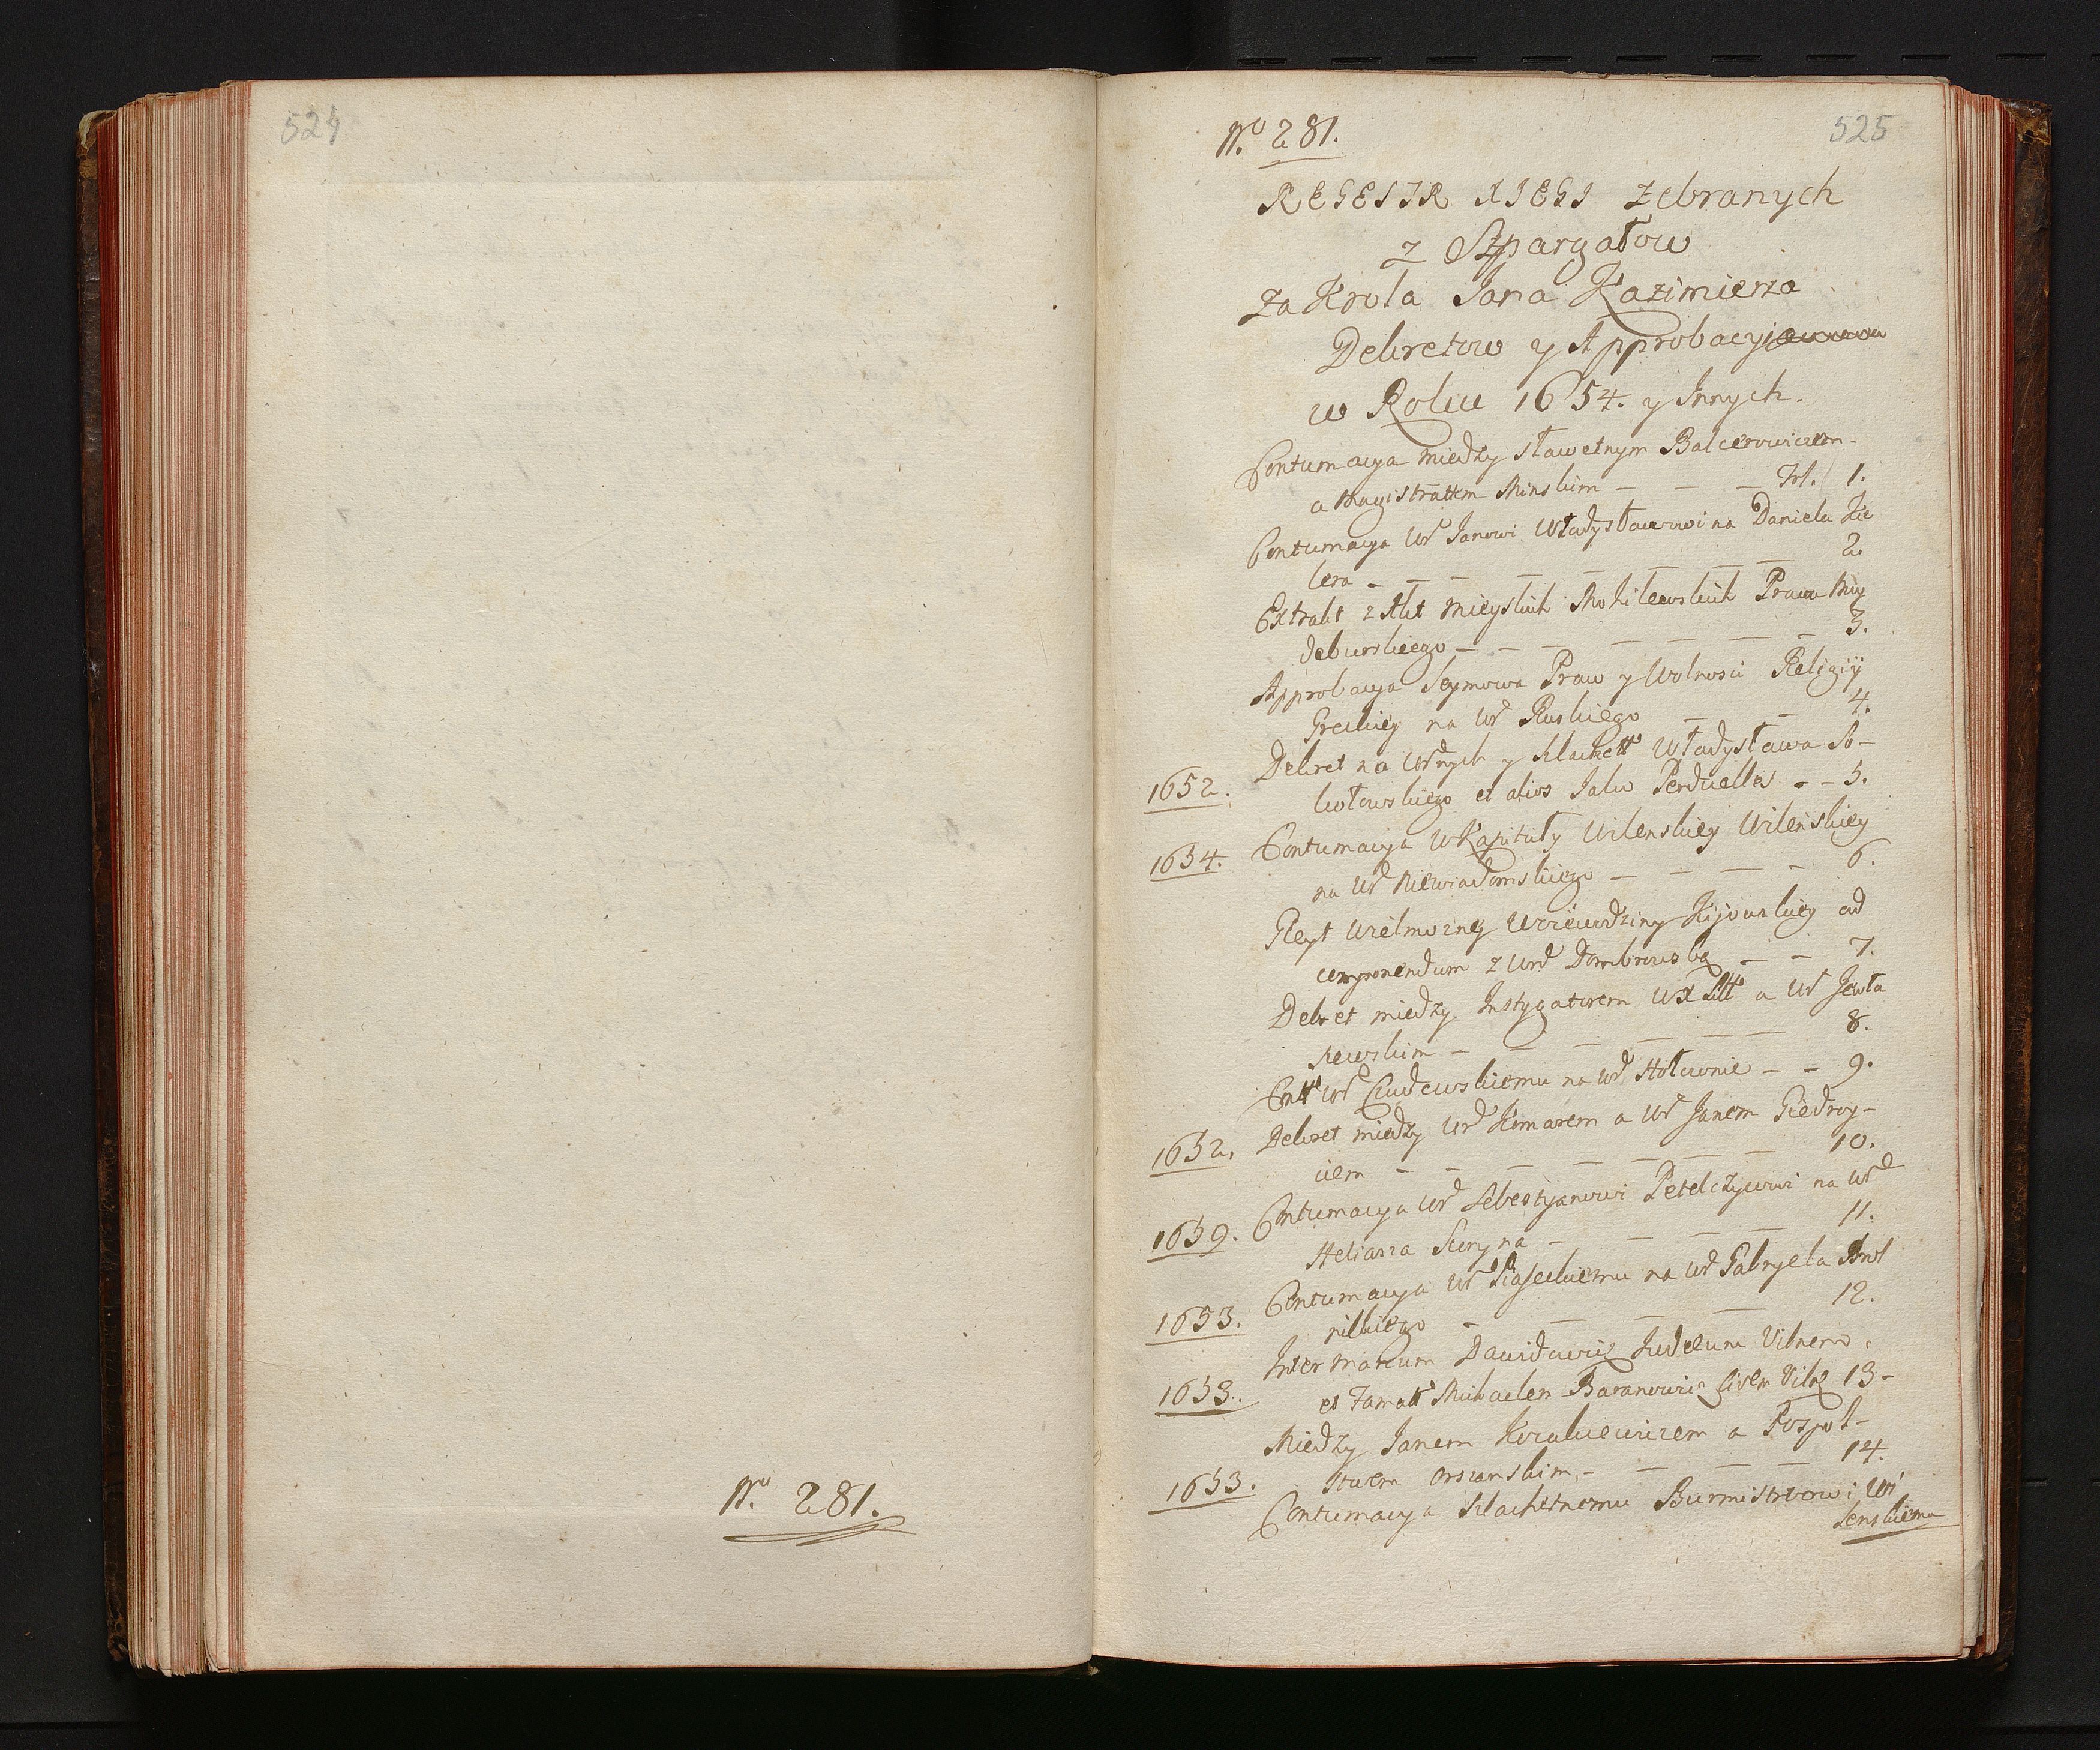 524
No 281.
525
No 281.
REGESTR XIĘGI zebranych
z Szpargałow
za Krola Jana Kazimierza
Dekretow y Approbacyi
w Roku 1654. y Innych.
Contumacya między sławetnym Balcerowiczem -
a Magistratem Minskim - - - 1.
Contumacya Urd Janowi Władysławowi na Daniela Kie
lera - - - - - - - 2.
Extrakt z Akt Mieyskich Mohilewskich Prawa May
deburskiego - - - - - - 3.
Approbacya Seymowa Praw y Wolnosci Religiÿ
Greckiey na Urd Ruskiego - - 4.
1652. Dekret na Urdnych y Szlachett Władysława So-
kołowskiego et alios Jako Perduelles - - 5.
1654. Contumacya W Kapituły Wilenskiey Wilenskiey
na Urd Niewiadomskiego - - - - 6.
Gleyt Wielmozney Woiewodziny Kijowskiey ad
componendum z Urd Dombrowską - - 7.
Dekret między Instygatorem WX Litt a Urd Jewła
szewskim - - - - - - 8.
Contt Urd Czudowskiemu na Urd Hołownie - - 9.
1652. Dekret między Urd Komarem a Urd Janem Giedroy-
ciem - - - - - - 10.
1659. Contumacya Urd Sebestyanowi Petelczycowi na Urd
Heliasza Suryna - - - - 11.
1653. Contumacya Urd Piaseckiemu na Urd Gabryela
- - - - 12.
1653. Inter Marcum Dawidowicz Judeum Vilnens.
et Famatt Michaelem Baranowicz Civem Viln 13-
1653. Między Janem Kozakiewiczem a Pospol-
stwem Orszanskim - - - - 14.
Contumacya Szlachetnemu Burmistrzowi Wi
lenskiemu